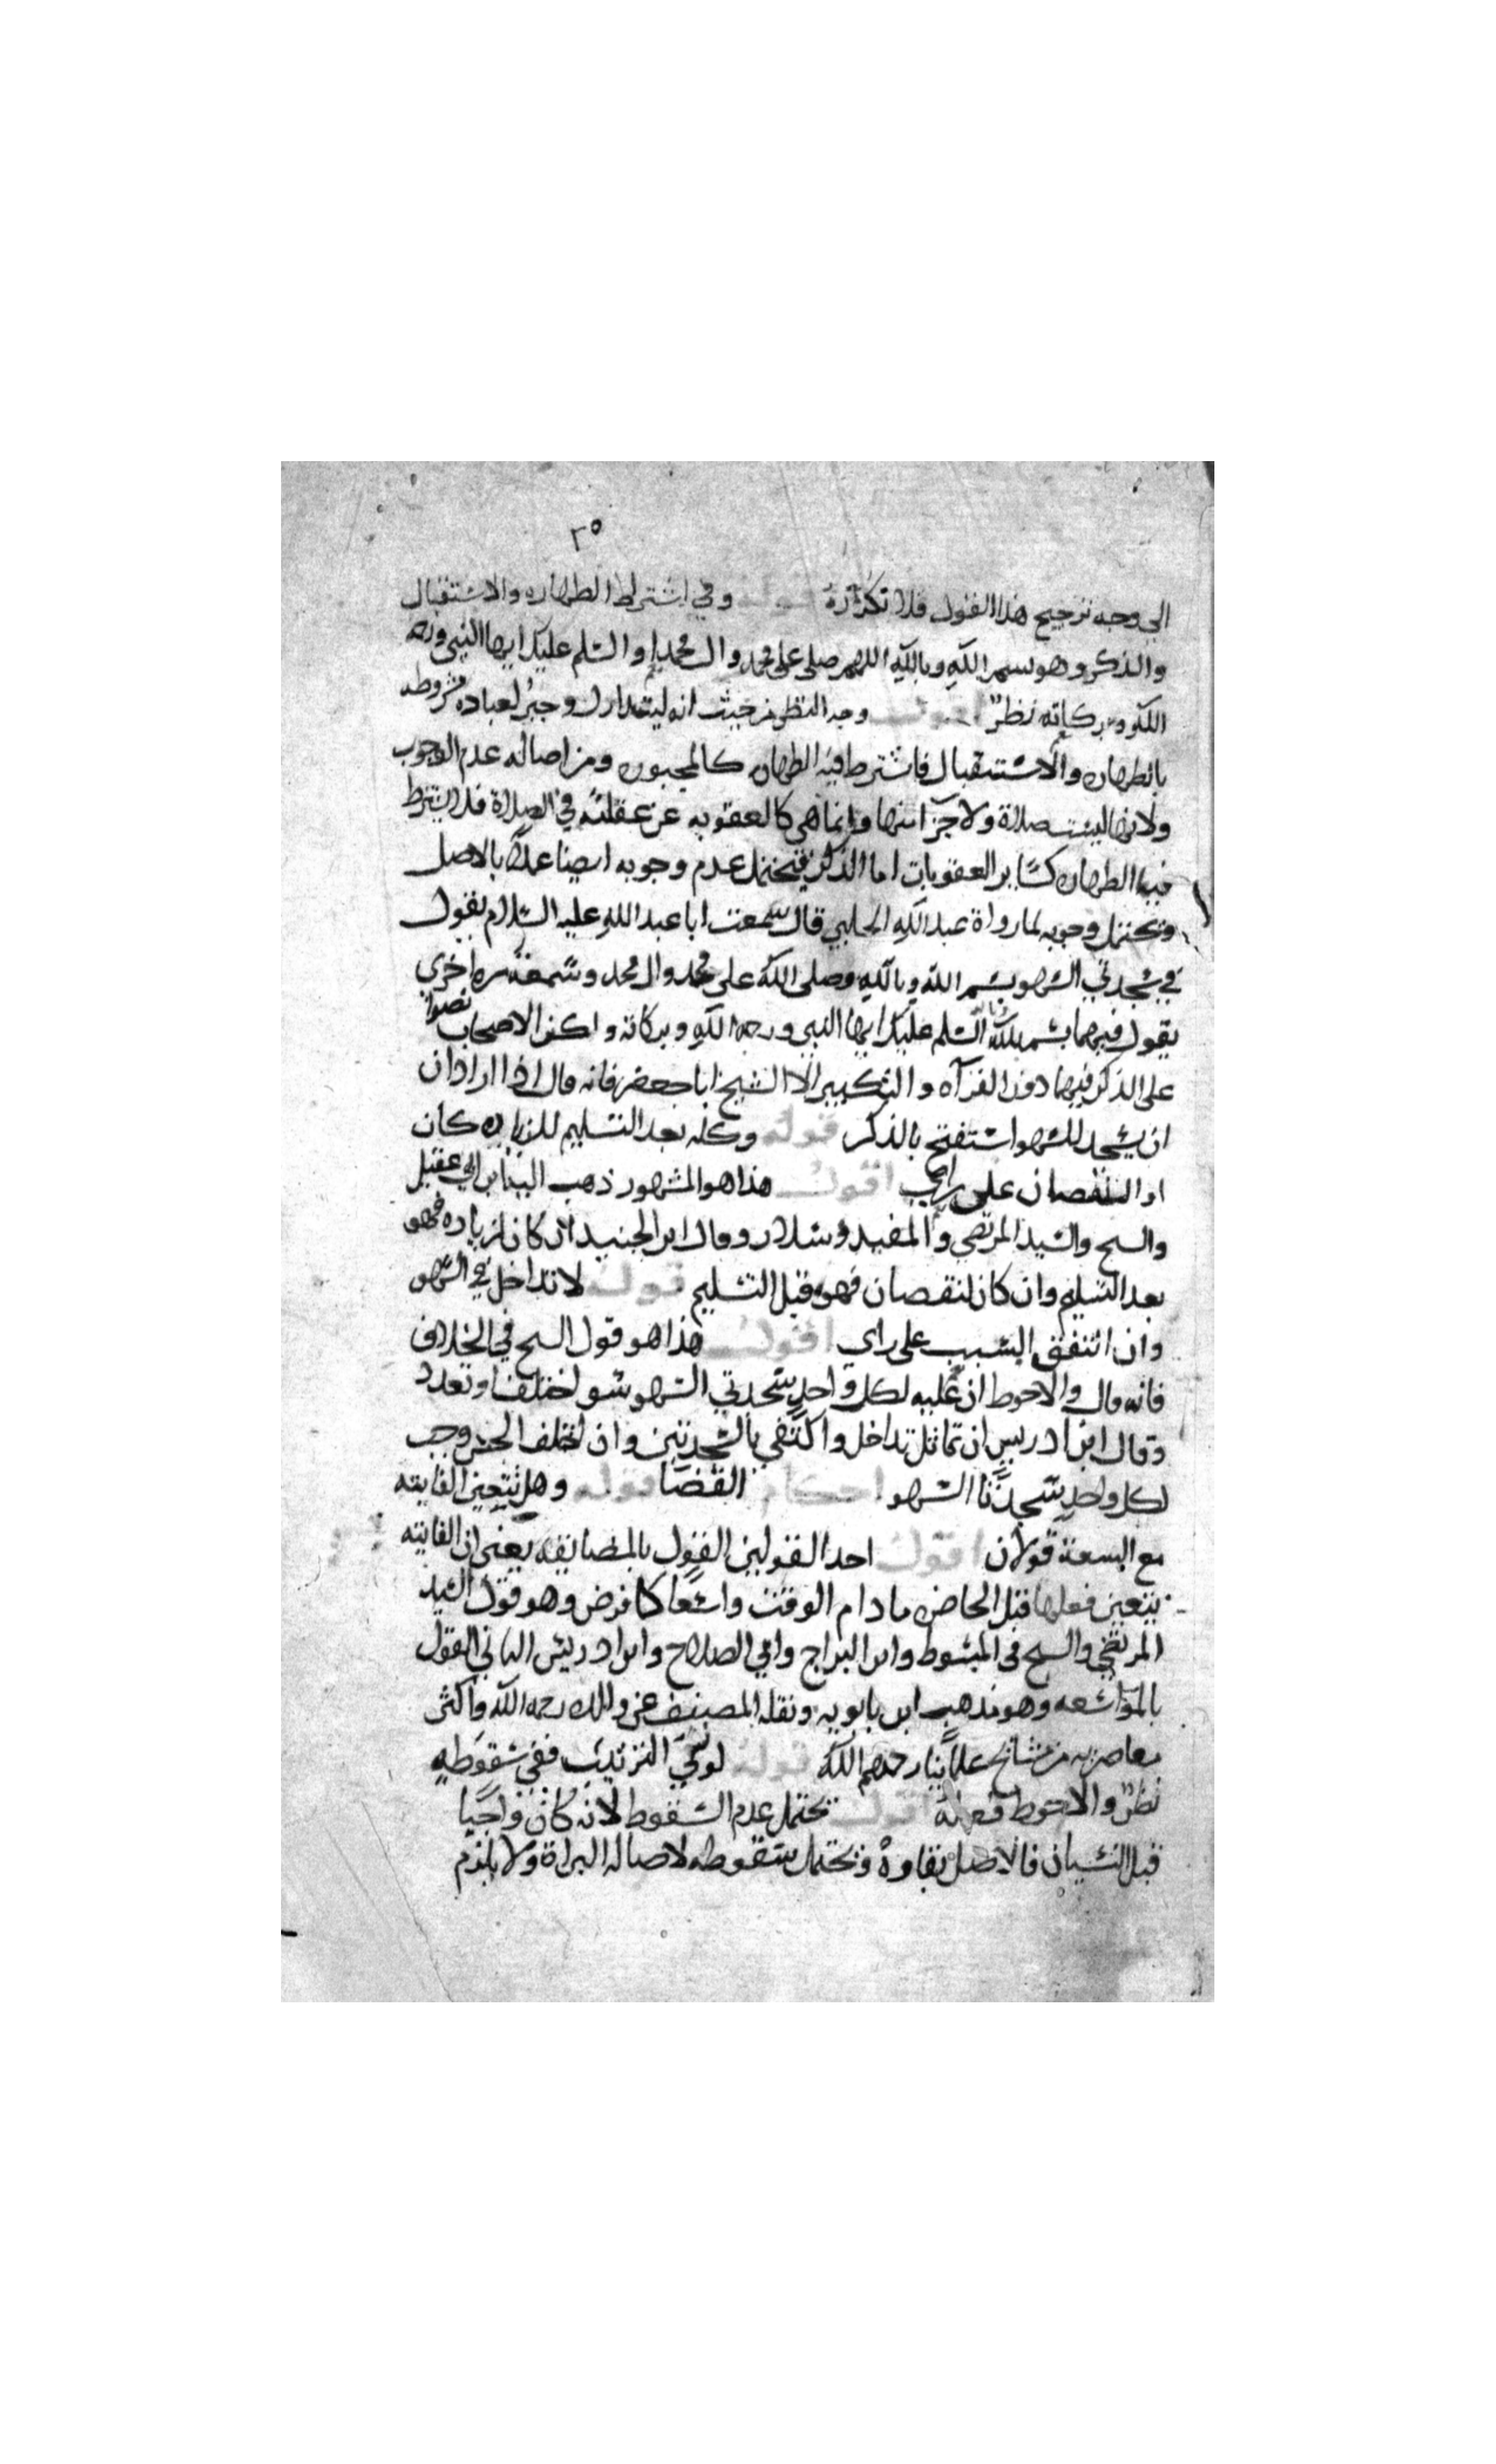 ٢٥
الى وجه ترجيح هذا القول فلا تكراره قوله وفي اشتراط الطهاره والاستقبال
والذكر وهو بسم الله وبالله اللهم صلى على محمد وال محمد او السلم عليك ايها النبي ورحمه
الله وبركاته نظرٌ اقول وجه النظر من حيث انه ليتدارك وجبر لعباده مشروطه
بالطهاره والاستقبال فاشترط فيه الطهاره كالمجبوره ومن اصاله عدم الوجوب
ولانها ليست صلاة ولا جزا منها وانما هي كالعقوبه عن غفلته في الصلاة فلا يشترط
فيها الطهاره كساير العقوبات اما الذكر فيحتمل عدم وجوبه ايضا عملاً بالاصل
ويحتمل وجوبه لما رواة عبد الله الحلبي قال سمعت ابا عبد الله عليه السلام يقول
في سجدتي السهو بسم الله وبالله وصلى الله على محمد وال محمد وسمعته مره اخرى
يقول فيهما بسم الله السلم عليك ايها النبي ورحمه الله وبركاته واكثر الاصحاب نصوا
على الذكر فيهما دون القرآه والتكبير الا الشيخ ابا جعفر فانه قال اذا اراد ان
ان يسجد للسهو استفتح بالذكر قوله وكله بعد التسليم للزياده كان
او النقصان على راي اقول هذا هو المشهور ذهب اليه ابن ابي عقيل
والسح والسيد المرتضي والمفيد وسلار وقال ابن الجنيد ان كان لزياده فهو
بعد التسليم وان كان لنقصان فهو قبل التسليم قوله لا تداخل في السهو
وان اتفق السبب على راي اقول هذا هو قول السح في الخلاف
فانه قال والاحوط ان عليه لكل واحد سجدتي السهو سو اختلف او تعدد
وقال ابن ادريس ان تماثل تداخل واكتفي بالسجدتين وان اختلف الجنس وجب
لكل واحد سجدتا السهو احكام القضا قوله وهل تتعين الفايته
مع السعة قولان اقول احد القولين القول بالمضايقه يعني ان الفايته
يتعين فعلها قبل الحاضره ما دام الوقت واسعا كما فرض وهو قول السيد
المرتضي والسح في المبسوط وابن البراج وابي الصلاح وابن ادريس الثاني القول
بالمواسعه وهو مذهب ابن بابويه ونقله المصنف عن والده رحمه الله واكثر
معاصريه من مشايخ علماينا رحمهم الله قوله لو نسي الترتيب ففي سقوطه
نظرٌ والاحوط فعله اقول يحتمل عدم السقوط لانه كان واجبا
قبل النسيان فالاصل بقاوه ويحتمل سقوطه لاصاله البراة ولا يلزم